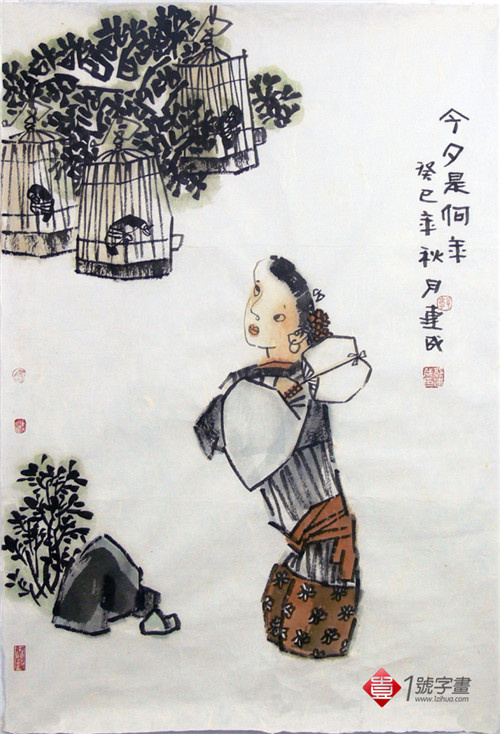 今夕是何年
癸巳年秋月建成
1號字畫
www.1zihua.com